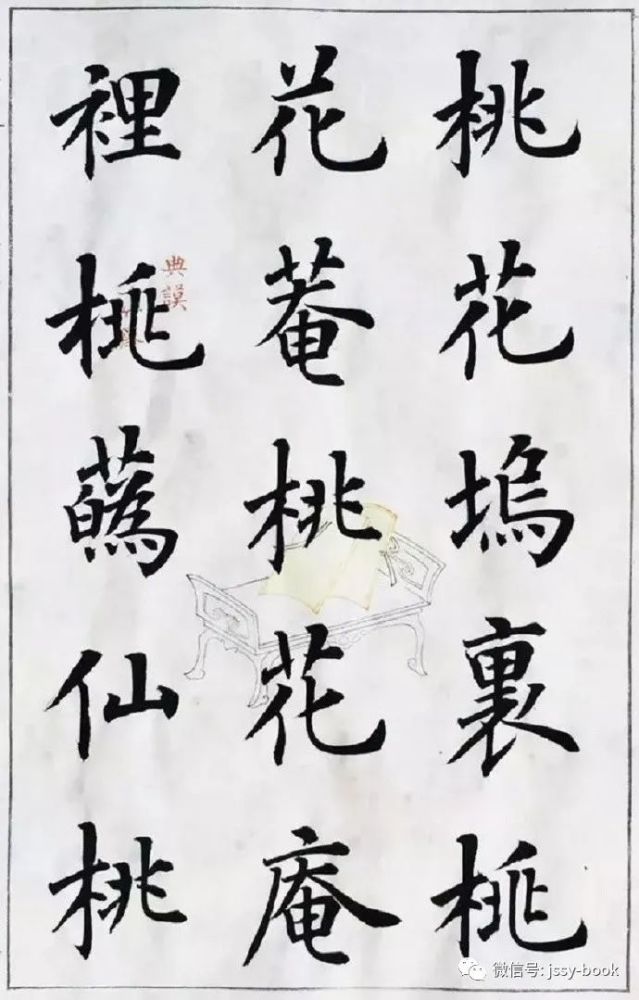 桃花塢裏桃
花菴桃花庵
裡桃蘤仙桃
典謨
微信号: jssy-book